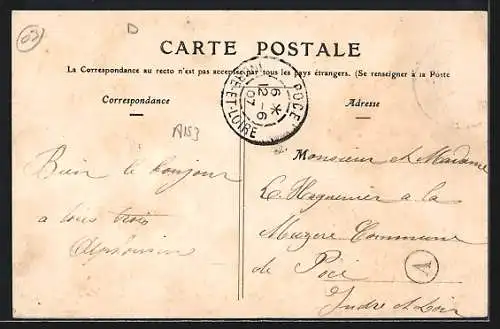 62
D
CARTE POSTALE
La Correspondance au recto n'est pas acceptée par tous les pays étrangers. (Se renseigner à la Poste
Correspondance
Adresse
POCÉ
6 *
12 - 6
07
INDRE-ET-LOIRE
A153
Bien le bonjour
a tous trois
Monsieur et Madame
a la
Commune
de Pocé
Indre et Loire
A